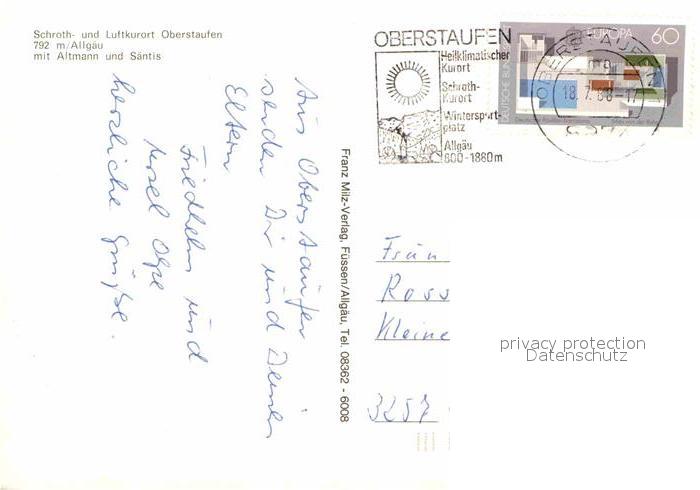 Schroth- und Luftkurort Oberstaufen
792 m/Allgäu
mit Altmann und Säntis
Aus Oberstaufen
senden Dir und Deinen
Eltern
Friedhelm und
herzliche Grüße.
Franz Milz-Verlag, Füssen/Allgäu, Tel. 08362 - 6008
OBERSTAUFEN
Heilklimatischer
Kurort
Schroth-
Kurort
Wintersport-
platz
Allgäu
800-1880m
EUROPA 60
DEUTSCHE BUNDESPOST
OBERSTAUFEN 1
18.7.88-17
Frau
Ross
Kleine
3257
privacy protection
Datenschutz